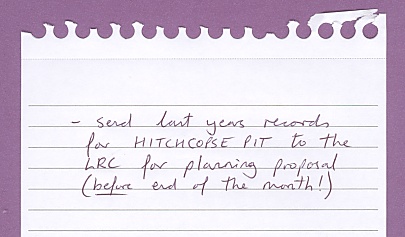 - send last years records
for HITCHCOPSE PIT to the
LRC for planning proposal
(before end of the month!)